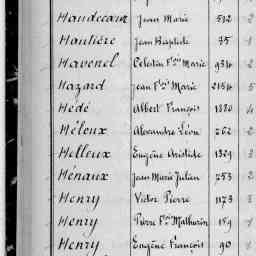 Haudecaux Jean Marie 512 2
Hautière Jean Baptiste 75 1
Havenel Célestin Fçois Marie 934 2
Hazard Jean Fçois Marie 2154 5
Hédé Albert François 1880 4
Héleux Alexandre Léon 762 2
Helleux Eugène Aristide 1329 3
Hénaux Jean Marie Julien 753 2
Henry Victor Pierre 1173 3
Henry Pierre Fçois Mathurin 159 1
Henry Eugène François 90 1